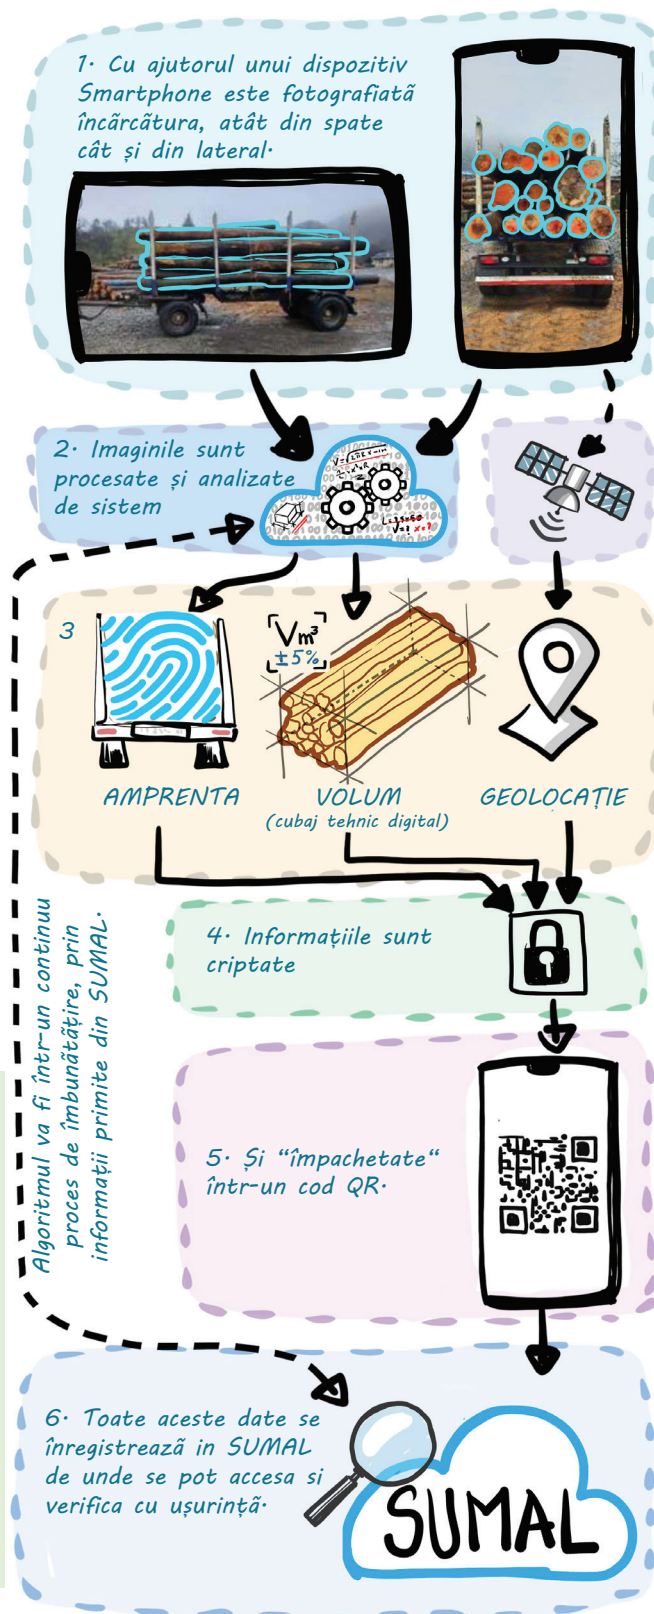 1. Cu ajutorul unui dispozitiv
Smartphone este fotografiatã
încãrcãtura, atât din spate
cât și din lateral.
2. Imaginile sunt
procesate și analizate
de sistem
3
Vm³
±5%
AMPRENTA
VOLUM
(cubaj tehnic digital)
GEOLOCAȚIE
4. Informațiile sunt
criptate
Algoritmul va fi într-un continuu
proces de îmbunãtãțire, prin
informații primite din SUMAL.
5. Și “împachetate“
într-un cod QR.
6. Toate aceste date se
înregistreazã in SUMAL
de unde se pot accesa si
verifica cu ușurințã.
SUMAL